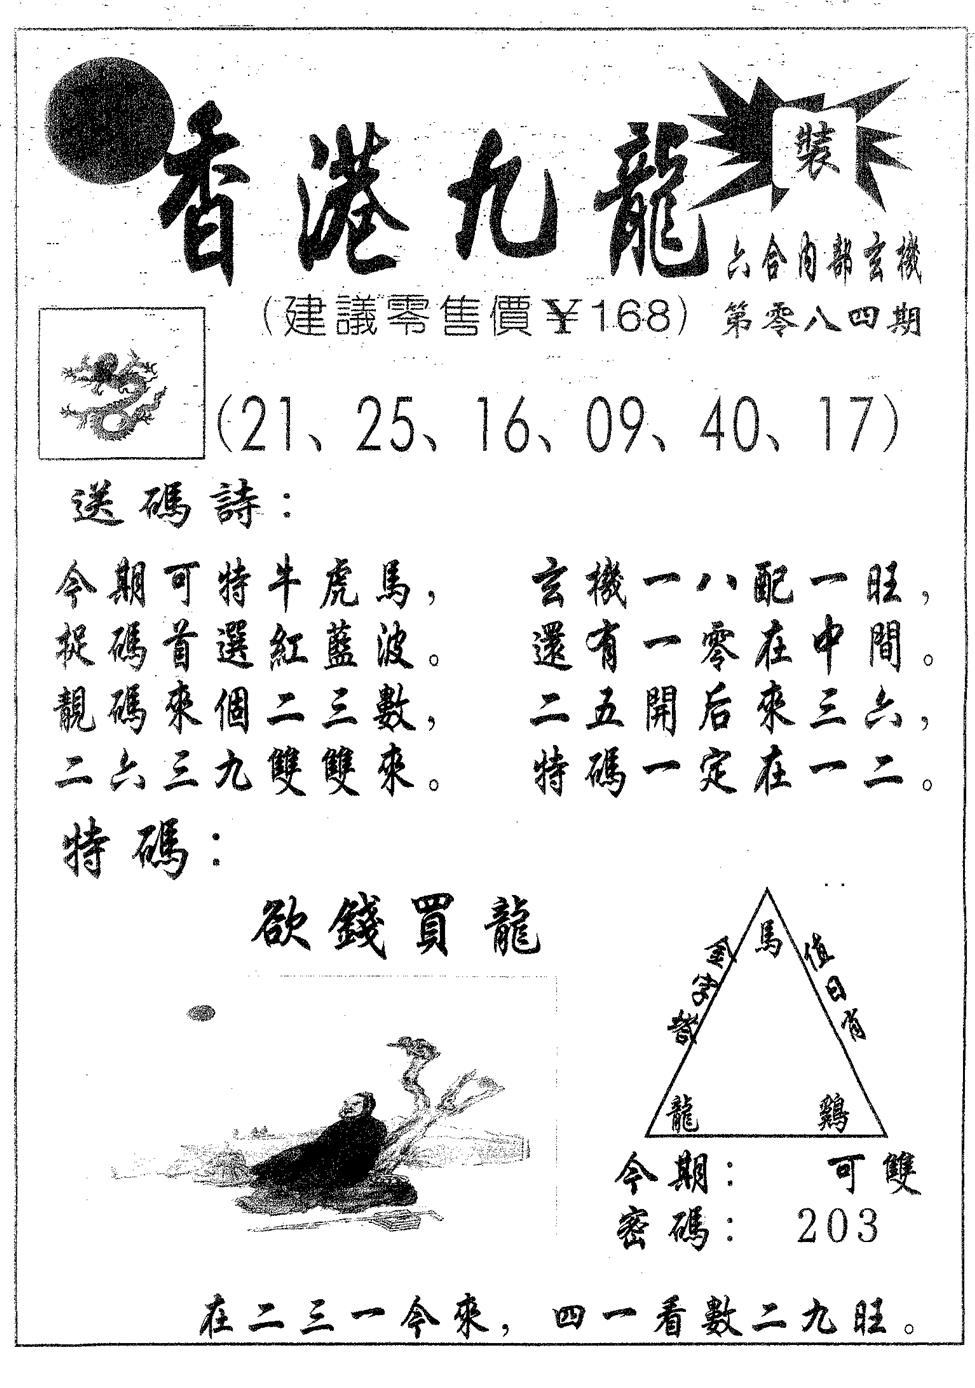 香港九龍
裝
六合內部玄機
(建議零售價¥168)
第零八四期
(21、25、16、09、40、17)
送碼詩：
今期可特牛虎馬，
捉碼首選紅藍波。
靚碼來個二三數，
二六三九雙雙來。
玄機一八配一旺，
還有一零在中間。
二五開后來三六，
特碼一定在一二。
特碼：
欲錢買龍
金字塔
值日肖
馬
龍
鷄
今期： 可雙
密碼： 203
在二三一今來，四一看數二九旺。